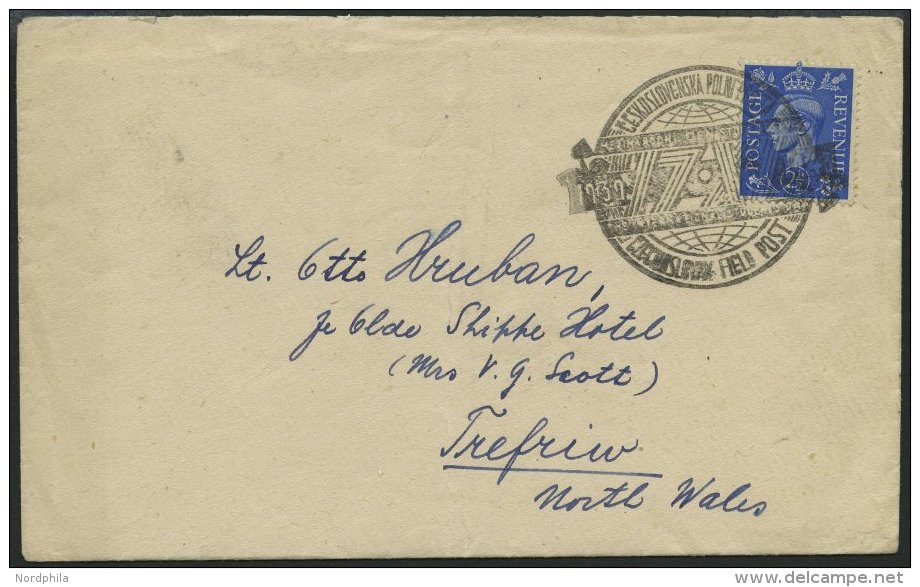 ČESKOSLOVENSKÁ POLNÍ
POSTAGE REVENUE
2½D
1939
CZECHOSLOVAK FIELD POST
Lt. Otto Hruban,
Ye Olde Shippe Hotel
(Mrs V. G. Scott)
Trefriw
North Wales
Nordphila
delcampe.net